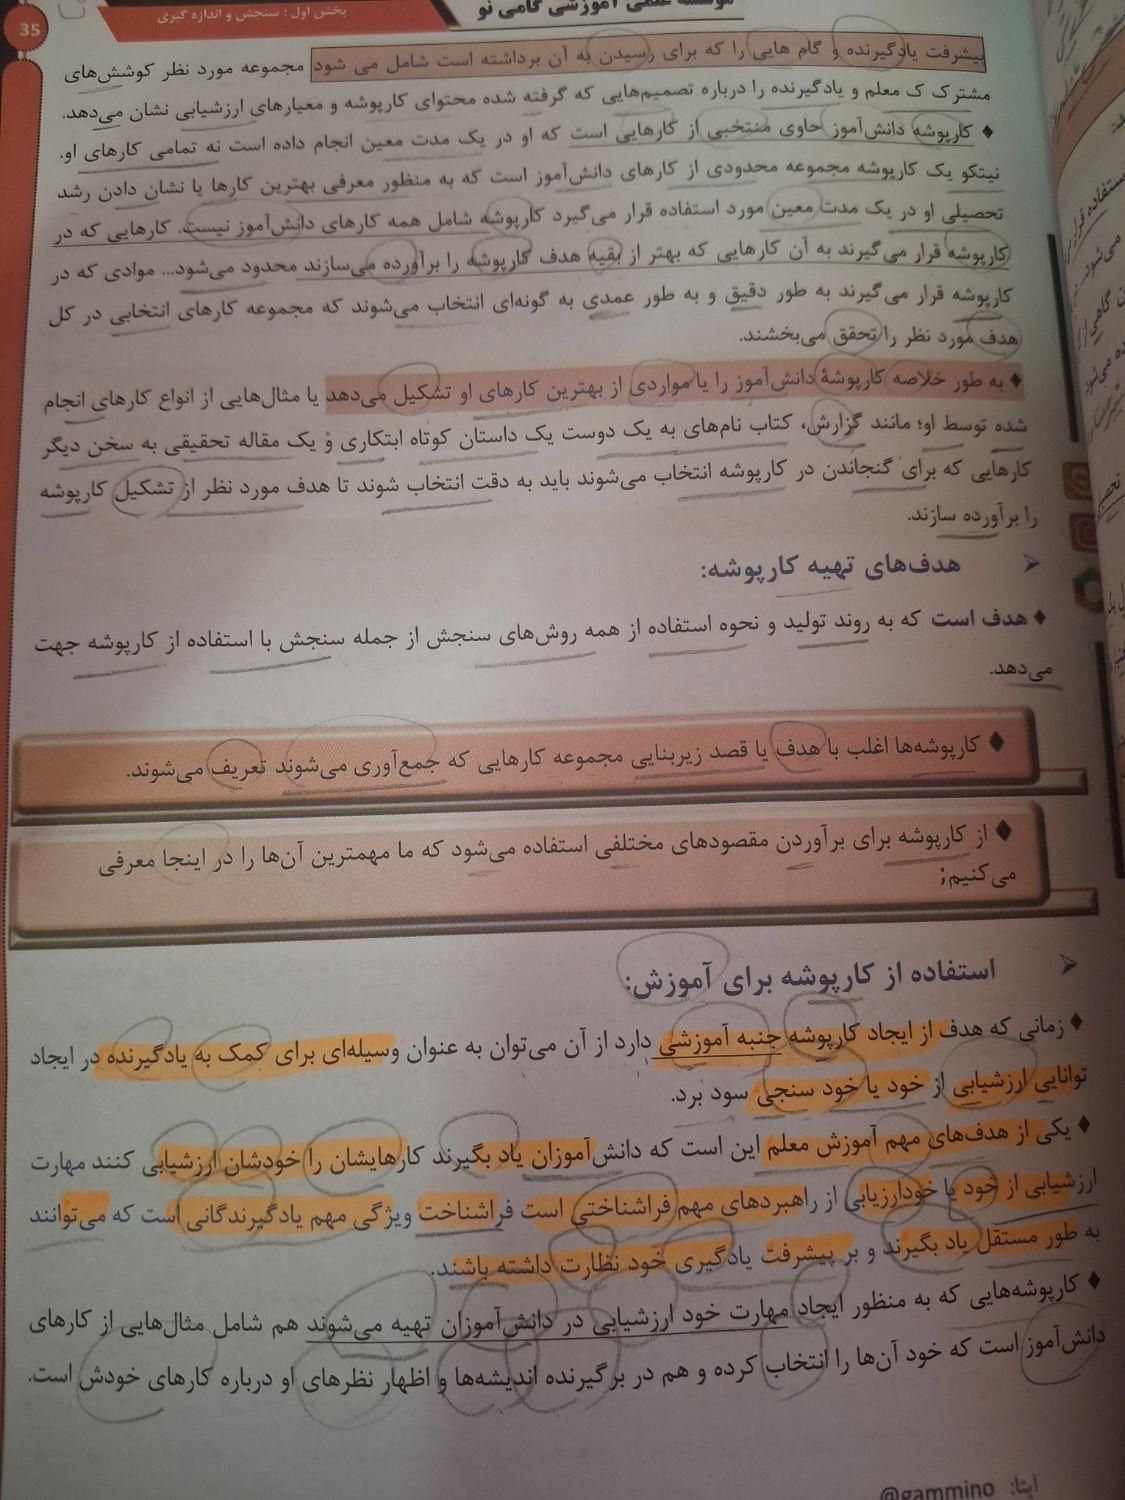 موسسه علمی آموزشی گامی نو
بخش اول : سنجش و اندازه گیری
35
پیشرفت یادگیرنده و گام هایی را که برای رسیدن به آن برداشته است شامل می شود مجموعه مورد نظر کوشش‌های
مشترک ک معلم و یادگیرنده را درباره تصمیم‌هایی که گرفته شده محتوای کارپوشه و معیارهای ارزشیابی نشان می‌دهد.
♦ کارپوشه دانش‌آموز حاوی منتخبی از کارهایی است که او در یک مدت معین انجام داده است نه تمامی کارهای او.
نیتکو یک کارپوشه مجموعه محدودی از کارهای دانش‌آموز است که به منظور معرفی بهترین کارها یا نشان دادن رشد
تحصیلی او در یک مدت معین مورد استفاده قرار می‌گیرد کارپوشه شامل همه کارهای دانش‌آموز نیست. کارهایی که در
کارپوشه قرار می‌گیرند به آن کارهایی که بهتر از بقیه هدف کارپوشه را برآورده می‌سازند محدود می‌شود... موادی که در
کارپوشه قرار می‌گیرند به طور دقیق و به طور عمدی به گونه‌ای انتخاب می‌شوند که مجموعه کارهای انتخابی در کل
هدف مورد نظر را تحقق می‌بخشند.
♦ به طور خلاصه کارپوشهٔ دانش‌آموز را یا مواردی از بهترین کارهای او تشکیل می‌دهد یا مثال‌هایی از انواع کارهای انجام
شده توسط او؛ مانند گزارش، کتاب نام‌های به یک دوست یک داستان کوتاه ابتکاری و یک مقاله تحقیقی به سخن دیگر
کارهایی که برای گنجاندن در کارپوشه انتخاب می‌شوند باید به دقت انتخاب شوند تا هدف مورد نظر از تشکیل کارپوشه
را برآورده سازند.
هدف‌های تهیه کارپوشه:
♦ هدف است که به روند تولید و نحوه استفاده از همه روش‌های سنجش از جمله سنجش با استفاده از کارپوشه جهت
می‌دهد.
♦ کارپوشه‌ها اغلب با هدف یا قصد زیربنایی مجموعه کارهایی که جمع‌آوری می‌شوند تعریف می‌شوند.
♦ از کارپوشه برای برآوردن مقصودهای مختلفی استفاده می‌شود که ما مهمترین آن‌ها را در اینجا معرفی
می‌کنیم;
استفاده از کارپوشه برای آموزش:
♦ زمانی که هدف از ایجاد کارپوشه جنبه آموزشی دارد از آن می‌توان به عنوان وسیله‌ای برای کمک به یادگیرنده در ایجاد
توانایی ارزشیابی از خود یا خود سنجی سود برد.
♦ یکی از هدف‌های مهم آموزش معلم این است که دانش‌آموزان یاد بگیرند کارهایشان را خودشان ارزشیابی کنند مهارت
ارزشیابی از خود یا خودارزیابی از راهبردهای مهم فراشناختی است فراشناخت ویژگی مهم یادگیرندگانی است که می‌توانند
به طور مستقل یاد بگیرند و بر پیشرفت یادگیری خود نظارت داشته باشند.
♦ کارپوشه‌هایی که به منظور ایجاد مهارت خود ارزشیابی در دانش‌آموزان تهیه می‌شوند هم شامل مثال‌هایی از کارهای
دانش‌آموز است که خود آن‌ها را انتخاب کرده و هم در بر گیرنده اندیشه‌ها و اظهار نظرهای او درباره کارهای خودش است.
ایتا: @gammino